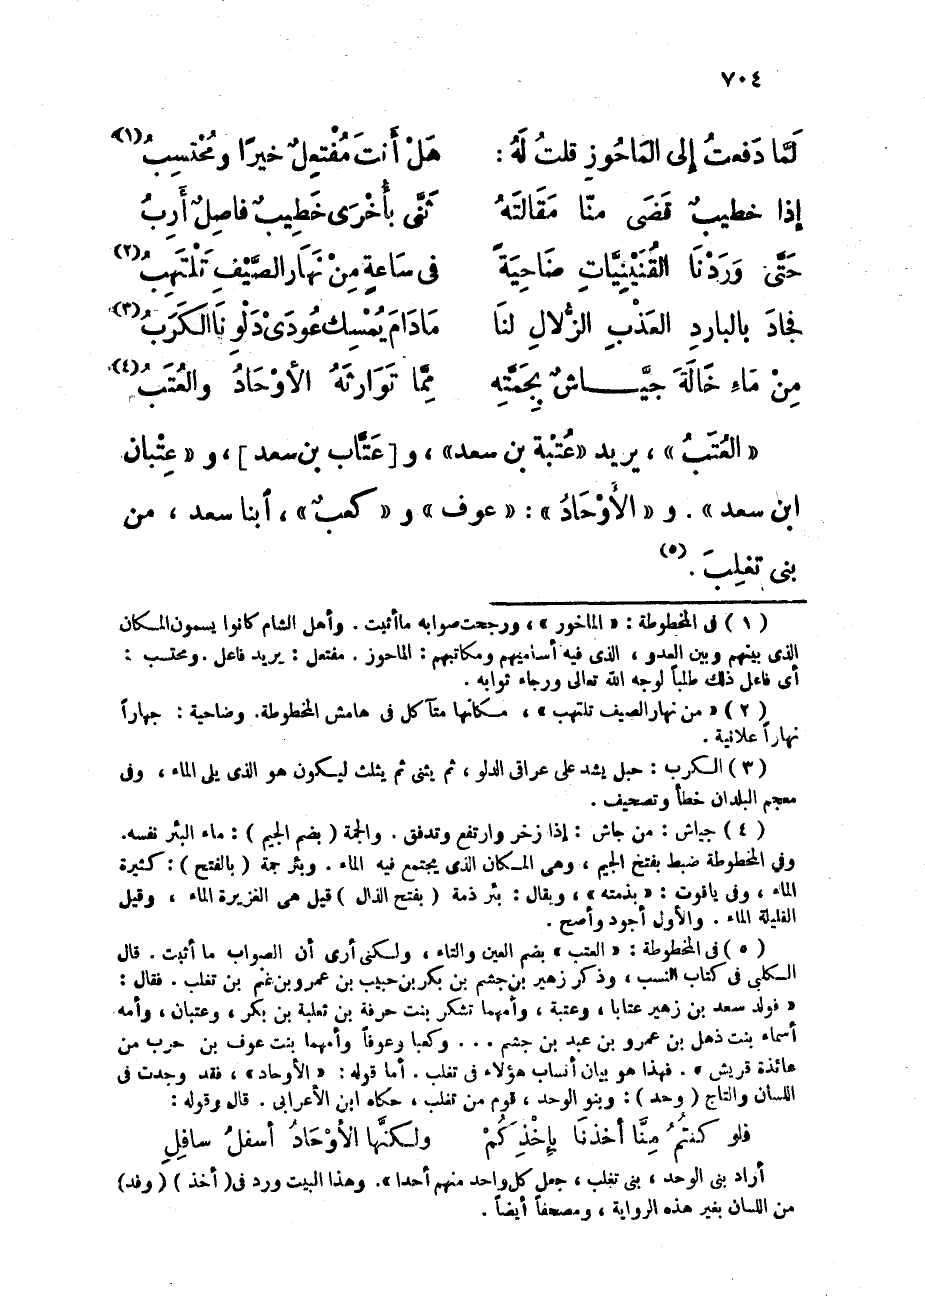 ٧٠٤
لَمَّا دَفَعتُ إلى المَاحُوزِ قلتُ لَهُ : هَلْ أَنتَ مُفْتعِلٌ خيرًا ومُحْتسِبُ(١)
إذا خطيبٌ قضَى منَّا مقَالتَهُ ثَنَّى بأُخْرَى خَطِيبٌ فاصِلٌ أَرِبُ
حَتَّى وَرَدْنَا القُنَيْنِيَّاتِ ضَاحِيَةً فى سَاعةٍ مِنْ نَهَارِ الصَّيْفِ تَلْتَهِبُ(٢)
فجادَ بالباردِ العَذْبِ الزُّلالِ لنَا مَادَامَ يُمْسِك عُودَىْ دَلْوِنَا الكَرَبُ(٣)
مِنْ مَاءِ خَالَةَ جيَّاشٌ بِجَمَّتِهِ مِمَّا تَوَارثَهُ الأوْحَادُ والعُتَبُ(٤)
« العُتَبُ » ، يريد « عُتْبة بن سعد » ، و [ عَتَّاب بن سعد ] ، و « عِتْبان
ابن سعد » . و « الأَوْحَادُ » : « عوف » و « كعبٌ » ، ابنا سعد ، من
بنى تغلِبَ .(٥)
( ١ ) فى المخطوطة : « الماخور » ، ورجحت صوابه ما أثبت . وأهل الشام كانوا يسمون المكان
الذى بينهم وبين العدو ، الذى فيه أساميهم ومكاتبهم : الماحوز . مفتعل : يريد فاعل . ومحتسب :
أى فاعل ذلك طلباً لوجه الله تعالى ورجاء ثوابه .
( ٢ ) « من نهار الصيف تلتهب » ، مكانها متآكل فى هامش المخطوطة. وضاحية : جهاراً
نهاراً علانية .
( ٣ ) الكرب : حبل يشد على عراقى الدلو ، ثم يثنى ثم يثلث ليكون هو الذى يلى الماء ، وفى
معجم البلدان خطأ وتصحيف .
( ٤ ) جياش : من جاش : إذا زخر وارتفع وتدفق . والجمة ( بضم الجيم ) : ماء البئر نفسه.
وفى المخطوطة ضبط بفتح الجيم ، وهى المكان الذى يجتمع فيه الماء . وبئر جمة ( بالفتح ) : كثيرة
الماء ، وفى ياقوت : « بذمته » ، ويقال : بئر ذمة ( بفتح الذال ) قيل هى الغزيرة الماء ، وقيل
القليلة الماء . والأول أجود وأصح .
( ٥ ) فى المخطوطة : « العتب » بضم العين والتاء ، ولكنى أرى أن الصواب ما أثبت . قال
الكلبى فى كتاب النسب ، وذكر زهير بن جشم بن بكر بن حبيب بن عمرو بن غنم بن تغلب . فقال :
« فولد سعد بن زهير عتابا ، وعتبة ، وأمهما تشكر بنت حرفة بن ثعلبة بن بكر ، وعتبان ، وأمه
أسماء بنت ذهل بن عمرو بن عبد بن جشم ... وكعبا وعوفاً وأمهما بنت عوف بن حرب من
عائذة قريش » . فهذا هو بيان أنساب هؤلاء فى تغلب . أما قوله : « الأوحاد » ، فقد وجدت فى
اللسان والتاج ( وحد ) : وبنو الوحد ، قوم من تغلب ، حكاه ابن الأعرابى . قال وقوله :
فلو كنتُمُ مِنَّا أخذنَا بِإخْذِكُمْ ولكنَّها الأوْحَادُ أسفلُ سافلِ
أراد بنى الوحد ، بنى تغلب ، جعل كل واحد منهم أحدا » . وهذا البيت ورد فى ( أخذ ) ( وفد )
من اللسان بغير هذه الرواية ، ومصحفاً أيضاً .